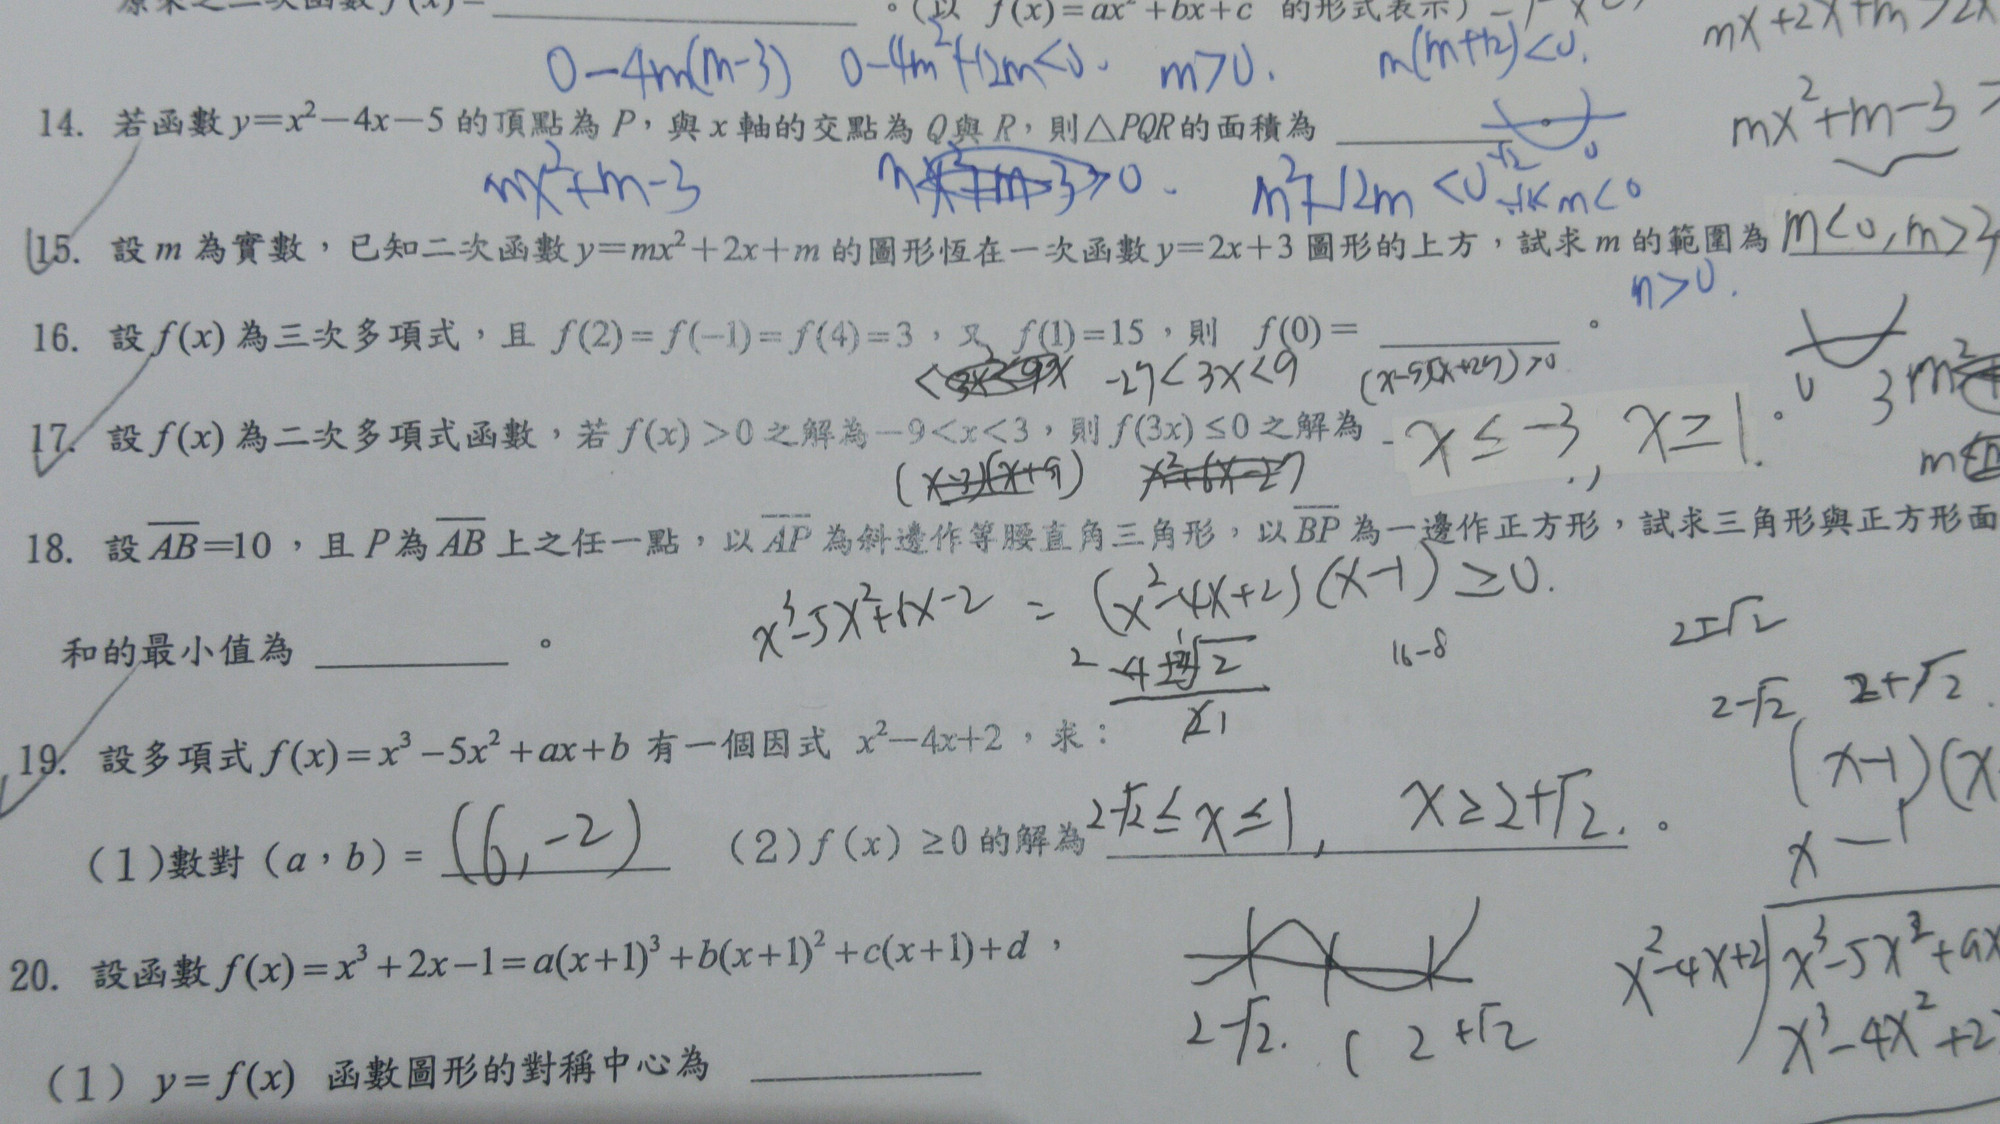 原來之二次函數 f(x)=________。(以 f(x)=ax²+bx+c 的形式表示)
mx+2x+m>2x
0-4m(m-3) 0-4m²+12m<0. m>0. m(m+12)<0.
14. 若函數 y=x²-4x-5 的頂點為 P，與 x 軸的交點為 Q與 R，則△PQR的面積為 ________
mx²+m-3>
mx²+m-3 >0. m²+12m<0 -12<m<0
15. 設 m 為實數，已知二次函數 y=mx²+2x+m 的圖形恆在一次函數 y=2x+3 圖形的上方，試求 m 的範圍為 m<0, m>3
m>0.
16. 設 f(x) 為三次多項式，且 f(2)=f(-1)=f(4)=3，又 f(1)=15，則 f(0)= ________。
-27<3x<9
3m²
17. 設 f(x) 為二次多項式函數，若 f(x)>0 之解為 -9<x<3，則 f(3x)≤0 之解為 x≤-3, x≥1.。
(x-3)(x+9) x²+6x-27
18. 設 AB=10，且 P 為 AB 上之任一點，以 AP 為斜邊作等腰直角三角形，以 BP 為一邊作正方形，試求三角形與正方形面
x³-5x²+6x-2 = (x²-4x+2)(x-1)≥0.
和的最小值為 ________。
16-8
2±√2
2-√2, 2+√2.
19. 設多項式 f(x)=x³-5x²+ax+b 有一個因式 x²-4x+2，求：
(x-1)(x
(1)數對 (a，b) = (6, -2) (2) f(x) ≥0 的解為 2-√2≤x≤1, x≥2+√2.。
x-1
20. 設函數 f(x)=x³+2x-1=a(x+1)³+b(x+1)²+c(x+1)+d，
x²-4x+2 x³-5x²+ax
x³-4x²+2
2-√2. 1 2+√2
(1) y=f(x) 函數圖形的對稱中心為 ________